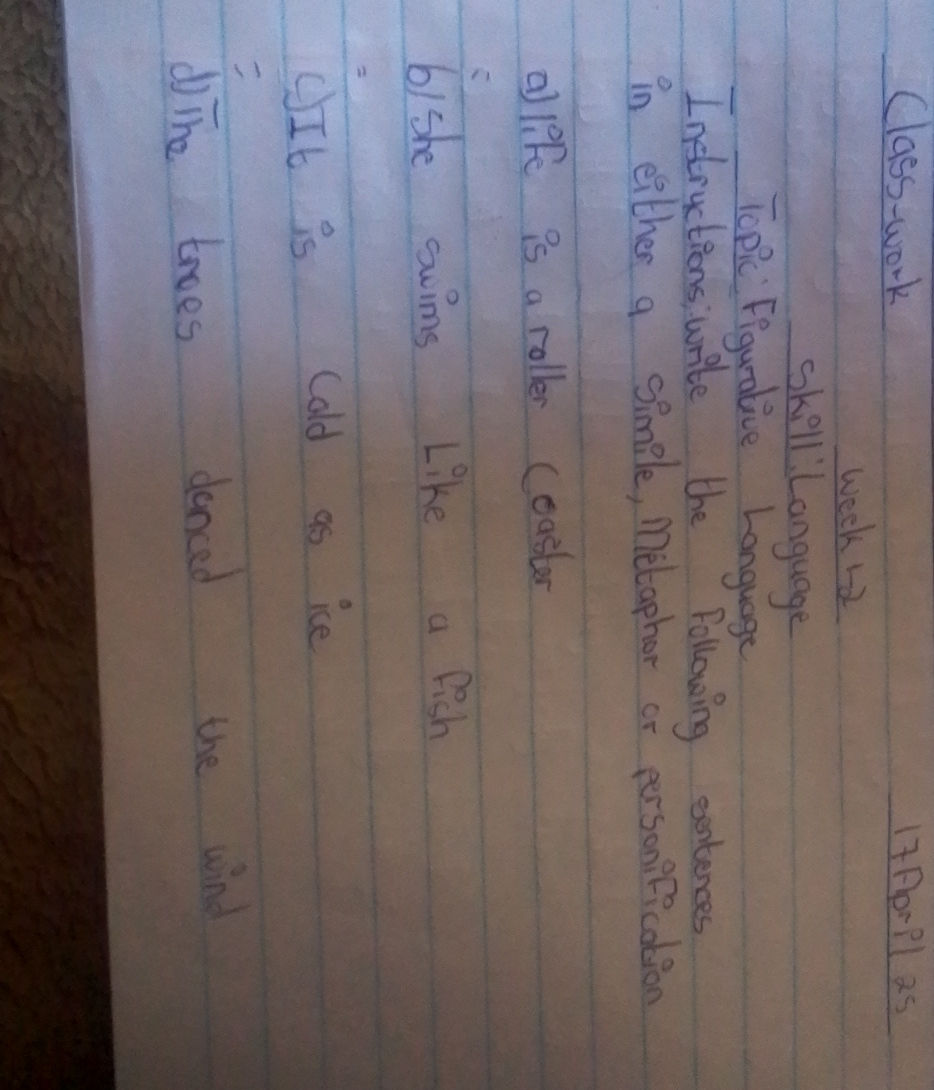 Class-work 17 April 25
Week 2
Skill: Language
Topic: Figurative Language
Instructions: write the following sentences
in either a simile, Metaphor or personification
a) life is a roller Coaster
b) She swims Like a fish
c) It is Cold as ice
d) The trees danced the wind